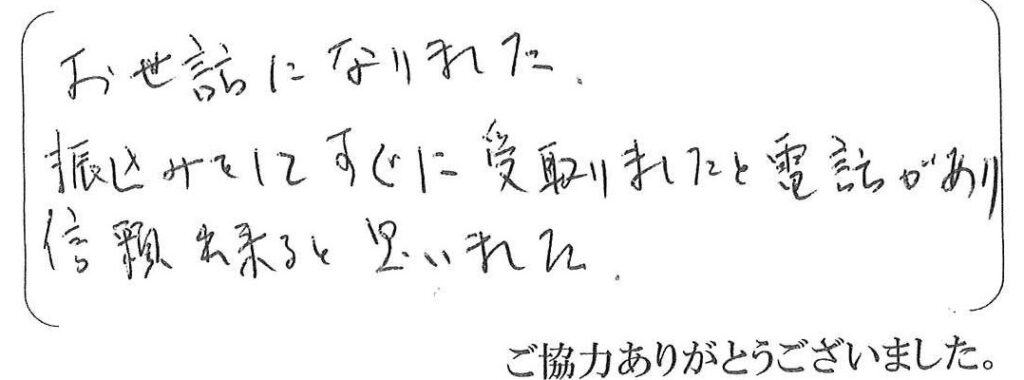 お世話になりました.
振込みをしてすぐに受取りましたと電話があり
信頼出来ると思いました.
ご協力ありがとうございました。